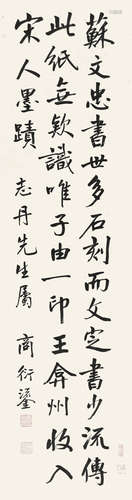 蘇文忠書世多石刻而文定書少流傳
此紙無款識唯子由一印王弇州收入
宋人墨蹟
志丹先生屬
商衍鎏